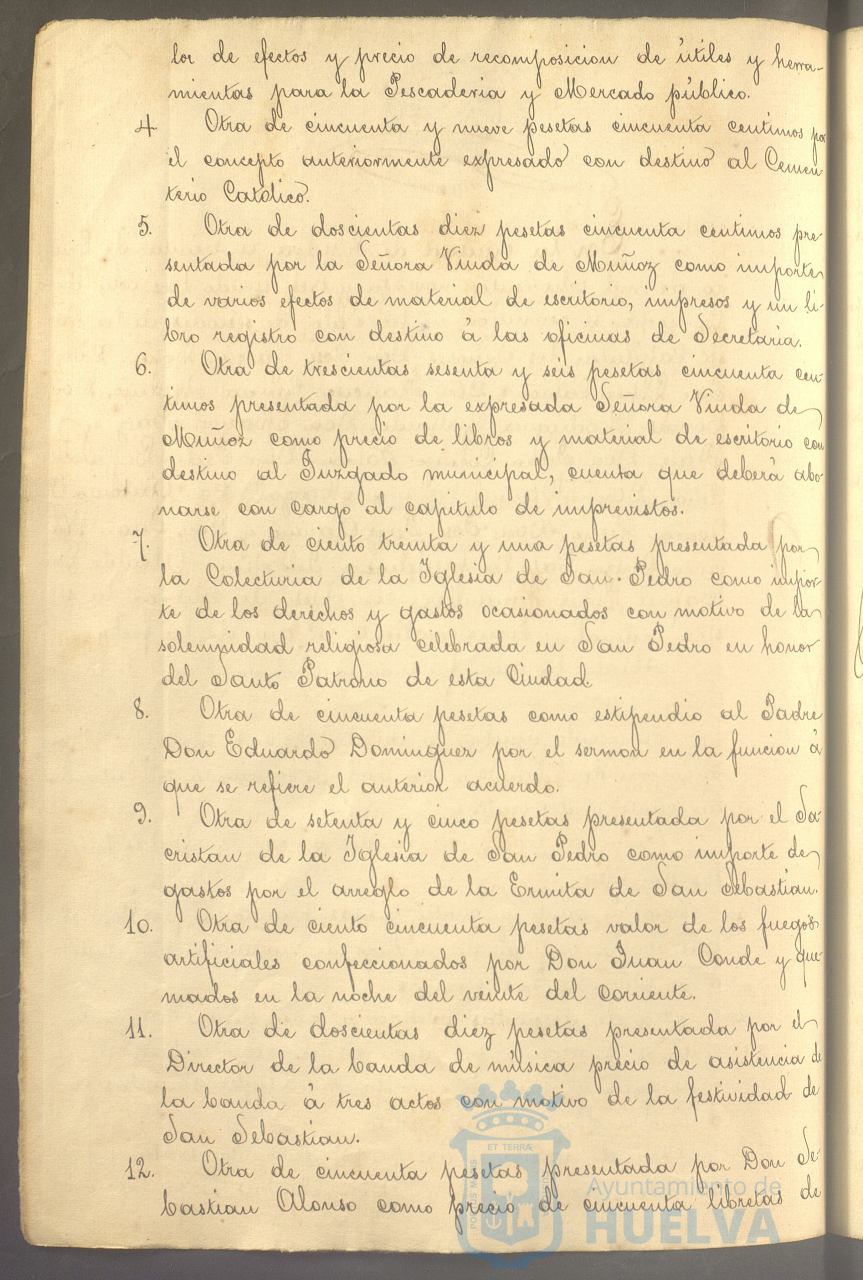 lor de efectos y precio de recomposicion de útiles y herra-
mientas para la Pescaderia y Mercado público.
4 Otra de cincuenta y nueve pesetas cincuenta centimos por
el concepto anteriormente expresado con destino al Cemen-
terio Católico.
5. Otra de doscientas diez pesetas cincuenta centimos pre-
sentada por la Señora Viuda de Muñoz como importe
de varios efectos de material de escritorio, impresos y un li-
bro registro con destino á las oficinas de Secretaria.
6. Otra de trescientas sesenta y seis pesetas cincuenta cen-
timos presentada por la expresada Señora Viuda de
Muñoz como precio de libros y material de escritorio con
destino al Juzgado municipal, cuenta que deberá abo-
narse con cargo al capitulo de imprevistos.
7. Otra de ciento treinta y una pesetas presentada por
la Colecturia de la Iglesia de San Pedro como impor-
te de los derechos y gastos ocasionados con motivo de la
solemnidad religiosa celebrada en San Pedro en honor
del Santo Patrono de esta Ciudad.
8. Otra de cincuenta pesetas como estipendio al Padre
Don Eduardo Dominguez por el sermon en la funcion á
que se refiere el anterior acuerdo.
9. Otra de setenta y cinco pesetas presentada por el Sa-
cristan de la Iglesia de San Pedro como importe de
gastos por el arreglo de la Ermita de San Sebastian.
10. Otra de ciento cincuenta pesetas valor de los fuegos
artificiales confeccionados por Don Juan Conde y que-
mados en la noche del veinte del corriente.
11. Otra de doscientas diez pesetas presentada por el
Director de la banda de música precio de asistencia de
la banda á tres actos con motivo de la festividad de
San Sebastian.
12. Otra de cincuenta pesetas presentada por Don Se-
bastian Alonso como precio de cincuenta libretas de
ET TERRÆ
Ayuntamiento de
HUELVA